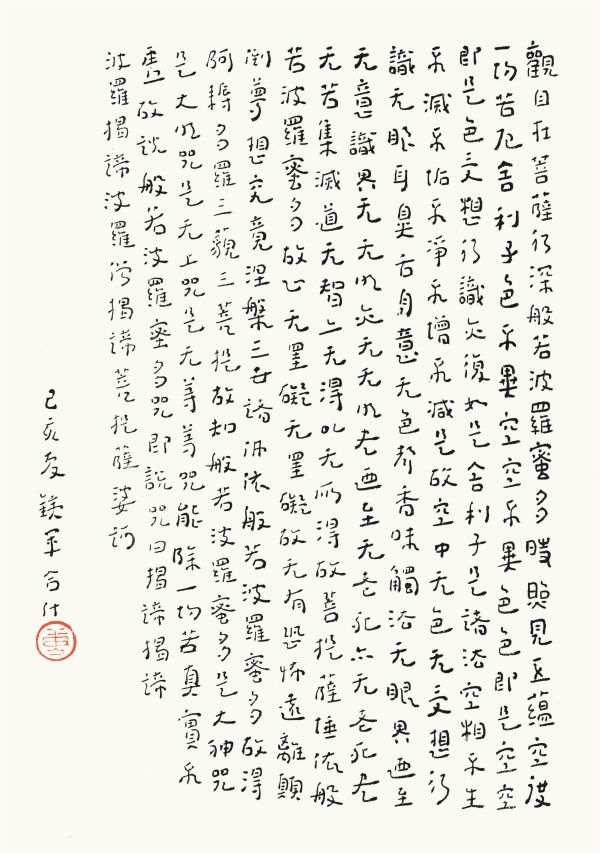 觀自在菩薩行深般若波羅蜜多時照見五蘊空度
一切苦厄舍利子色不異空空不異色色即是空空
即是色受想行識亦復如是舍利子是諸法空相不生
不滅不垢不淨不增不減是故空中无色无受想行
識无眼耳鼻舌身意无色聲香味觸法无眼界迺至
无意識界无无明亦无无明尽迺至无老死亦无老死尽
无苦集滅道无智亦无得以无所得故菩提薩埵依般
若波羅蜜多故心无罣礙无罣礙故无有恐怖遠離顛
倒夢想究竟涅槃三世諸佛依般若波羅蜜多故得
阿耨多羅三藐三菩提故知般若波羅蜜多是大神咒
是大明咒是无上咒是无等等咒能除一切苦真實不
虛故說般若波羅蜜多咒即說咒曰揭諦揭諦
波羅揭諦波羅僧揭諦菩提薩婆訶
己亥鐵軍合什